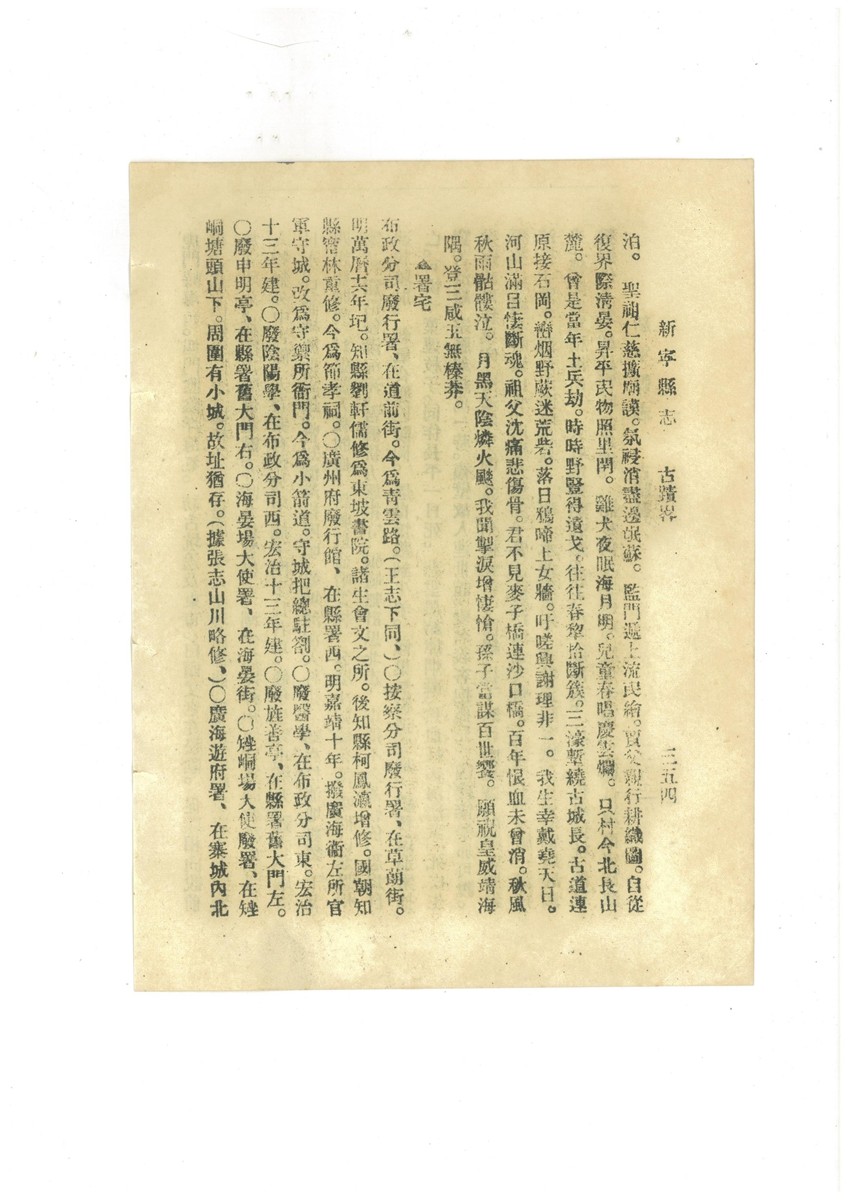 新寧縣志　古蹟畧　三五四
泊。　聖祖仁慈擴廟謨。氛祲消盡邊氓蘇。　監門遞上流民繪。賈父親行耕織圖。自從
復界際淸晏。昇平民物照里閈。　雞犬夜眠海月明。兒童春唱慶雲爛。　只村今北長山
麓。　曾是當年土兵劫。時時野豎得遺戈。往往春犂拾斷簇。三濠塹繞古城長。古道連
原接石岡。巒烟野蕨迷荒砦。落日鴉啼上女牆。吁嗟興謝理非一。　我生幸戴堯天日。
河山滿目悽斷魂。祖父沈痛悲傷骨。君不見麥子橋連沙口橋。百年恨血未曾消。秋風
秋雨骷髏泣。　月黑天陰燐火飈。我聞掣淚增悽愴。孫子當謀百世饗。　願祝皇威靖海
隅。登三咸五無榛莽。
署宅
布政分司廢行署、在道前街。今爲靑雲路。（王志下同、）〇按察分司廢行署、在草蓢街。
明萬曆十六年圮。知縣劉軒儒修爲東坡書院。諸生會文之所。後知縣柯鳳瀛增修。國朝知
縣甯林重修。今爲節孝祠。〇廣州府廢行館、　在縣署西。明嘉靖十年。撥廣海衞左所官
軍守城。改爲守禦所衙門。今爲小箭道。守城把總駐劄。〇廢醫學、在布政分司東。宏治
十三年建。〇廢陰陽學、在布政分司西。宏治十三年建。〇廢旌善亭、在縣署舊大門左。
〇廢申明亭、在縣署舊大門右。〇海晏場大使署、　在海晏街。〇矬峒場大使廢署、在矬
峒塘頭山下。周圍有小城。故址猶存。（據張志山川略修、）〇廣海遊府署、　在寨城內北